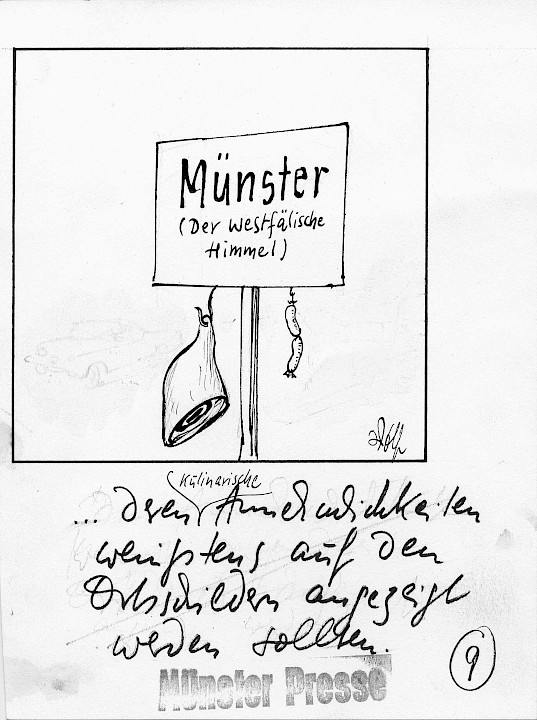 Münster
(Der Westfälische
Himmel)
Wolf
kulinarische
... deren Annehmlichkeiten
wenigstens auf den
Ortsschildern angezeigt
werden sollten.
9
Münster Presse